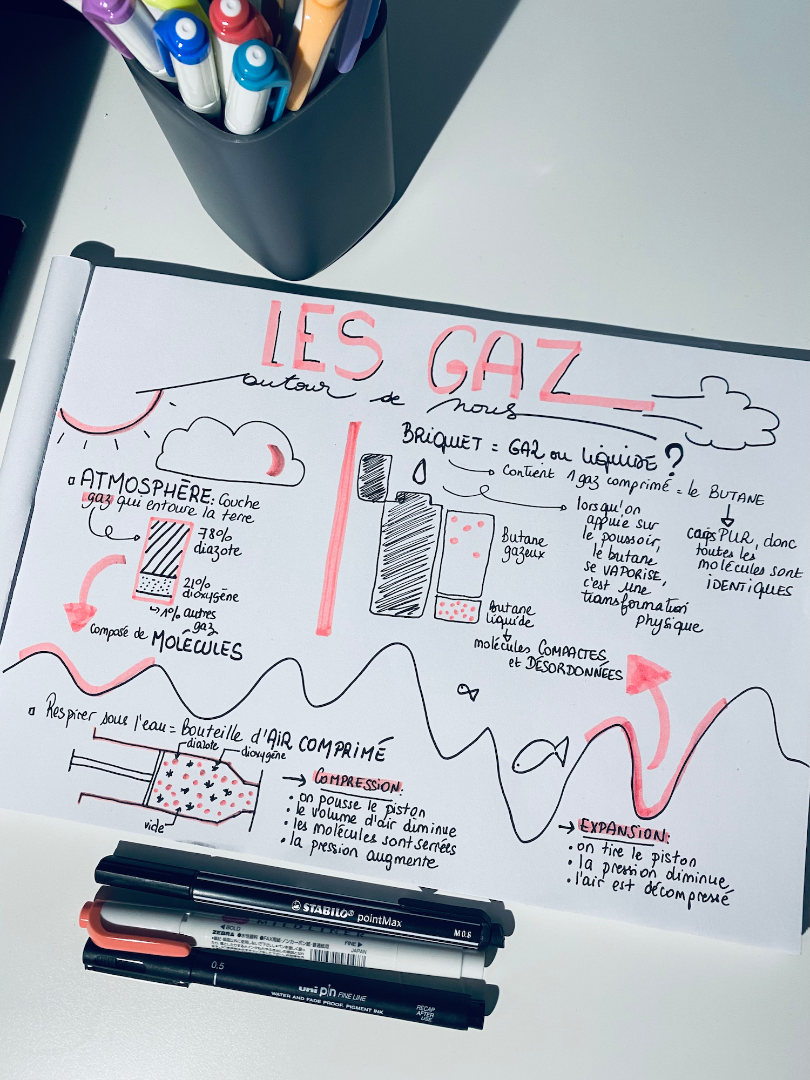 LES GAZ
autour de nous
ATMOSPHÈRE: Couche
gaz qui entoure la terre
78%
diazote
21%
dioxygène
1% autres
gaz
composé de MOLÉCULES
BRIQUET = GAZ ou LIQUIDE ?
Contient 1 gaz comprimé = le BUTANE
corps PUR, donc
toutes les
molécules sont
IDENTIQUES
lorsqu'on
appuie sur
le poussoir,
le butane
se VAPORISE,
c'est une
transformation
physique
Butane
gazeux
Butane
liquide
molécules COMPACTES
et DÉSORDONNÉES
Respirer sous l'eau = Bouteille d'AIR COMPRIMÉ
diazote
dioxygène
vide
COMPRESSION:
• on pousse le piston
• le volume d'air diminue
• les molécules sont serrées
• la pression augmente
EXPANSION:
• on tire le piston
• la pression diminue
• l'air est décompressé
STABILO pointMax M 0.8
BOLD
FINE
ZEBRA
JAPAN
0.5 uni pin FINE LINE
WATER AND FADE PROOF, PIGMENT INK
RECAP
AFTER
USE